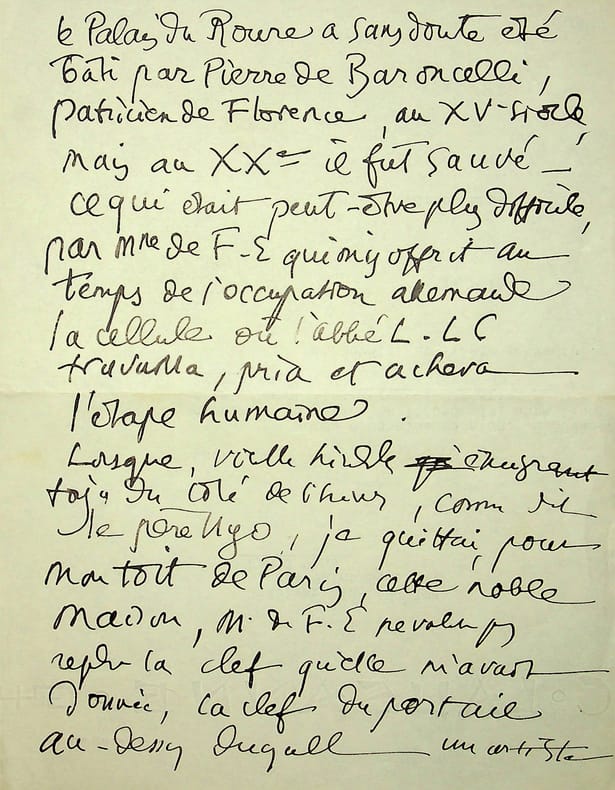 le Palais du Roure a sans doute été
bâti par Pierre de Baroncelli,
patricien de Florence, au XVe siècle,
mais au XXe il fut sauvé –
ce qui était peut-être plus difficile,
par Mme de F-E qui m'y offrit au
temps de l'occupation allemande
la cellule où l'abbé L. LC
travailla, pria et acheva
l'étape humaine.
Lorsque, vieille émigrant
du côté de comme dit
le père Ugo, je quittai, pour
mon toit de Paris, cette noble
maison, M. de F.E ne voulut pas
la clef qu'elle m'avait
donnée, la clef du portail
au-dessus duquel un artiste